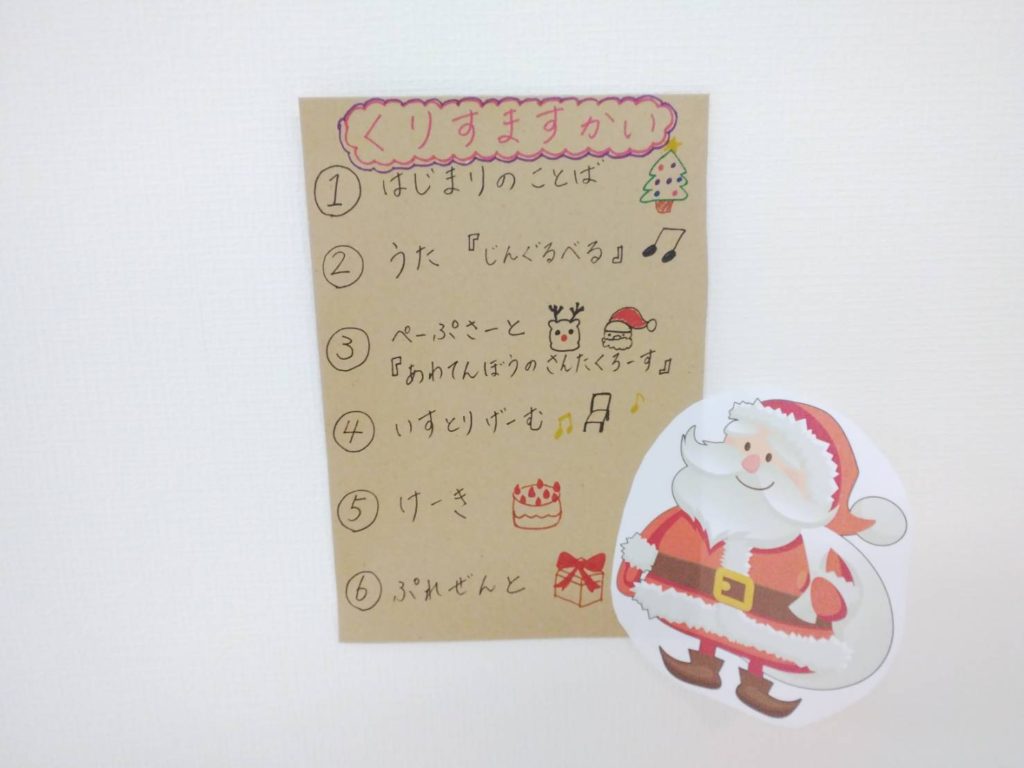 くりすますかい
① はじまりのことば
② うた『じんぐるべる』
③ ぺーぷさーと
『あわてんぼうのさんたくろーす』
④ いすとりげーむ
⑤ けーき
⑥ ぷれぜんと